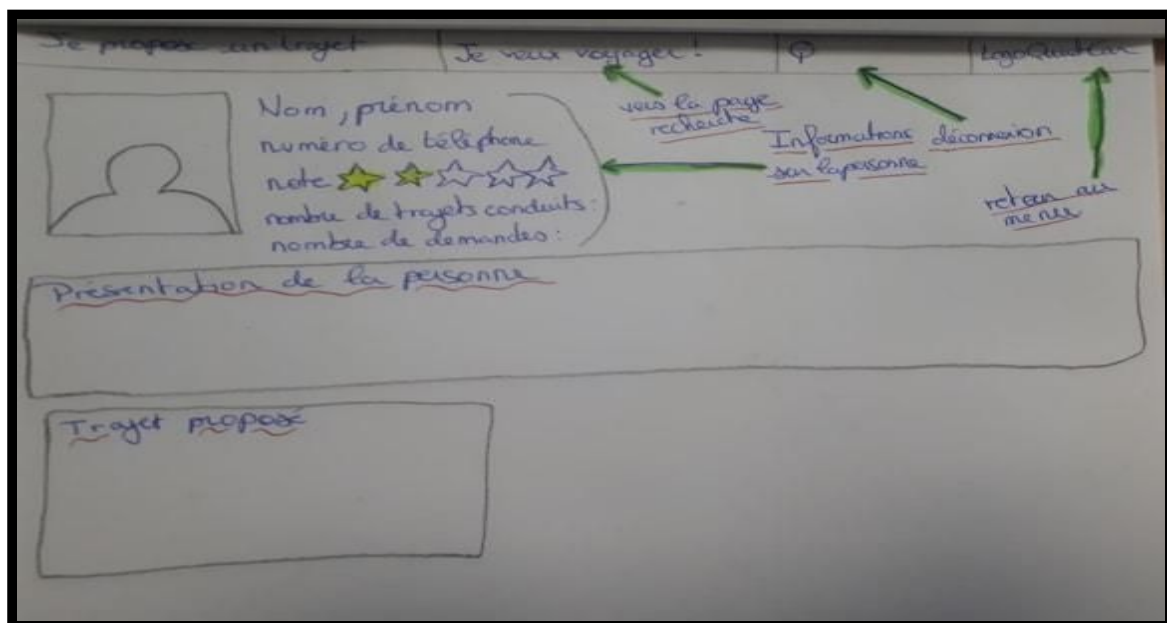 Je propose un trajet
Je veux voyager !
Nom, prénom
numéro de téléphone
note
nombre de trajets conduits :
nombre de demandes :
vers la page
recherche
Informations
sur la personne
déconnexion
retour au
menu
Présentation de la personne
Trajet proposé